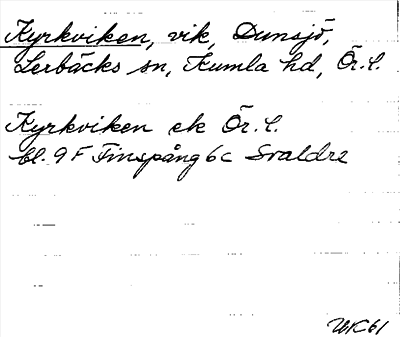 Kyrkviken, vik, Dunsjö,
Lerbäcks sn, Kumla hd, Ör. l.
Kyrkviken ek Ör. l.
bl. 9 F Finspång 6c
WC 61